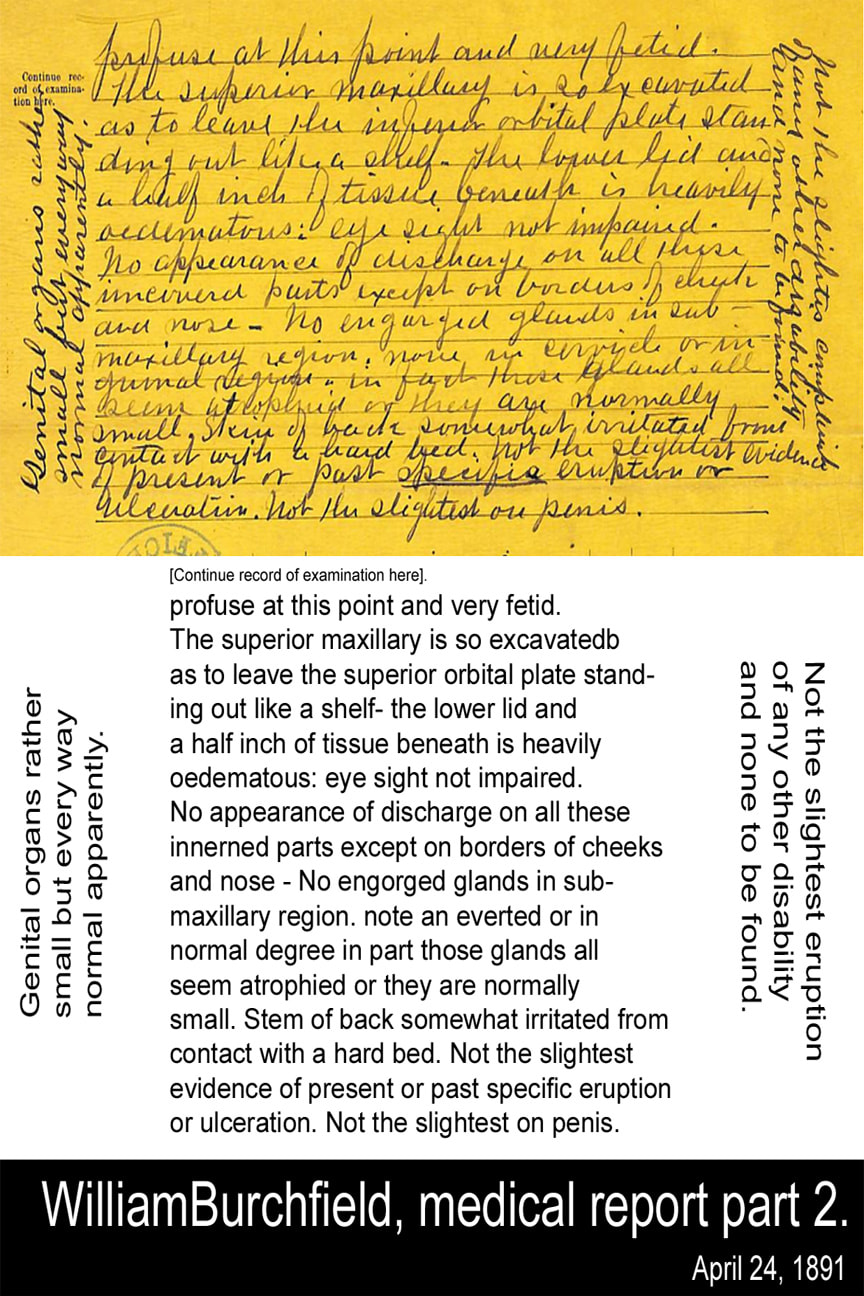 Continue rec-
ord of examina-
tion here.
Genital organs rather
small but every way
normal apparently.
profuse at this point and very fetid.
The superior maxillary is so excavated
as to leave the inferior orbital plate stan
ding out like a shelf- The lower lid and
a half inch of tissue beneath is heavily
oedematous: eye sight not impaired.
No appearance of discharge on all these
uncoverd parts except on borders of cheek
and nose - No engorged glands in sub-
maxillary region, none in cervicle or in
guinal region. in fact those glands all
seem atrophied or they are normally
small. Skin of back somewhat irritated from
contact with a hard bed. Not the slightest evidence
of present or past specific eruption or
ulceration. Not the slightest on penis.
Not the slightes complaint
of any other disability
and none to be found.
[Continue record of examination here].
profuse at this point and very fetid.
The superior maxillary is so excavatedb
as to leave the superior orbital plate stand-
ing out like a shelf- the lower lid and
a half inch of tissue beneath is heavily
oedematous: eye sight not impaired.
No appearance of discharge on all these
innerned parts except on borders of cheeks
and nose - No engorged glands in sub-
maxillary region. note an everted or in
normal degree in part those glands all
seem atrophied or they are normally
small. Stem of back somewhat irritated from
contact with a hard bed. Not the slightest
evidence of present or past specific eruption
or ulceration. Not the slightest on penis.
Genital organs rather
small but every way
normal apparently.
Not the slightest eruption
of any other disability
and none to be found.
WilliamBurchfield, medical report part 2.
April 24, 1891